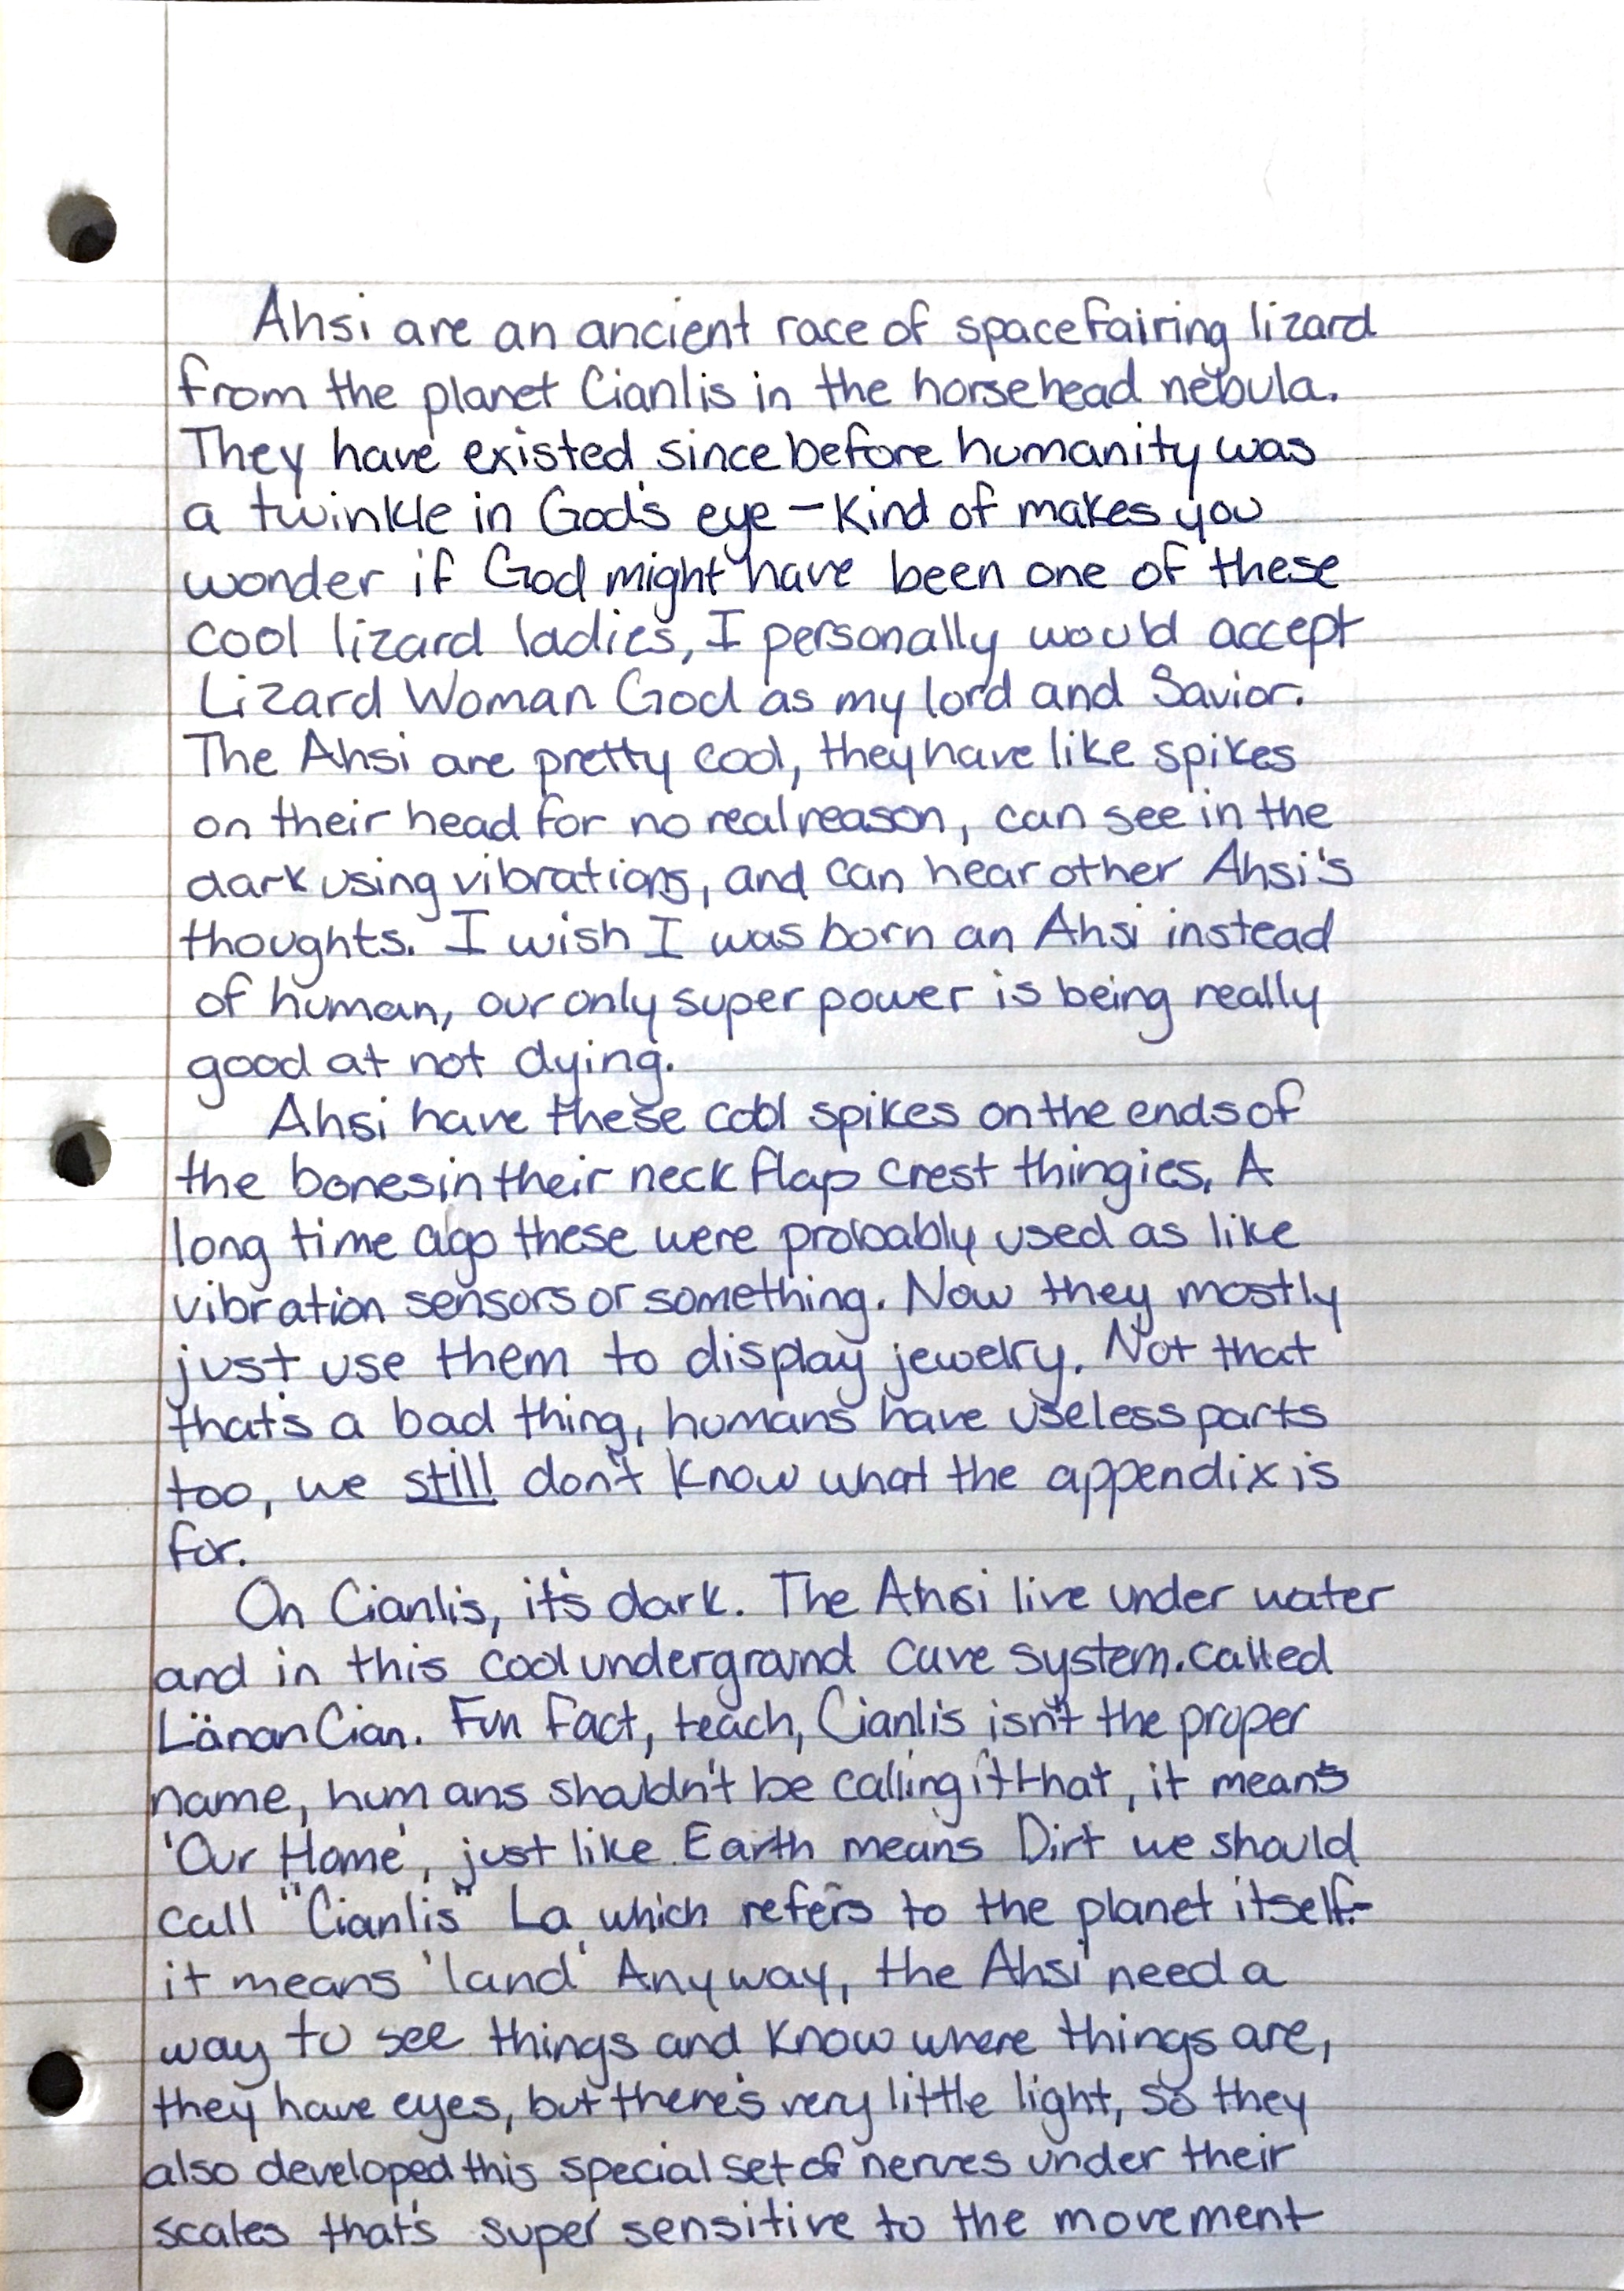 Ahsi are an ancient race of spacefairing lizard
from the planet Cianlis in the horsehead nebula.
They have existed since before humanity was
a twinkle in God's eye - Kind of makes you
wonder if God might have been one of these
cool lizard ladies, I personally would accept
Lizard Woman God as my lord and Savior.
The Ahsi are pretty cool, they have like spikes
on their head for no real reason, can see in the
dark using vibrations, and can hear other Ahsi's
thoughts. I wish I was born an Ahsi instead
of human, our only super power is being really
good at not dying.
Ahsi have these cool spikes on the ends of
the bones in their neck flap crest thingies. A
long time ago these were probably used as like
vibration sensors or something. Now they mostly
just use them to display jewelry. Not that
that's a bad thing, humans have useless parts
too, we still don't know what the appendix is
for.
On Cianlis, it's dark. The Ahsi live under water
and in this cool underground cave system. called
Länan Cian. Fun Fact, teach, Cianlis isn't the proper
name, humans shouldn't be calling it that, it means
'Our Home', just like Earth means Dirt we should
call "Cianlis" La, which refers to the planet itself-
it means 'land' Anyway, the Ahsi need a
way to see things and know where things are,
they have eyes, but there's very little light, so they
also developed this special set of nerves under their
scales that's super sensitive to the movement